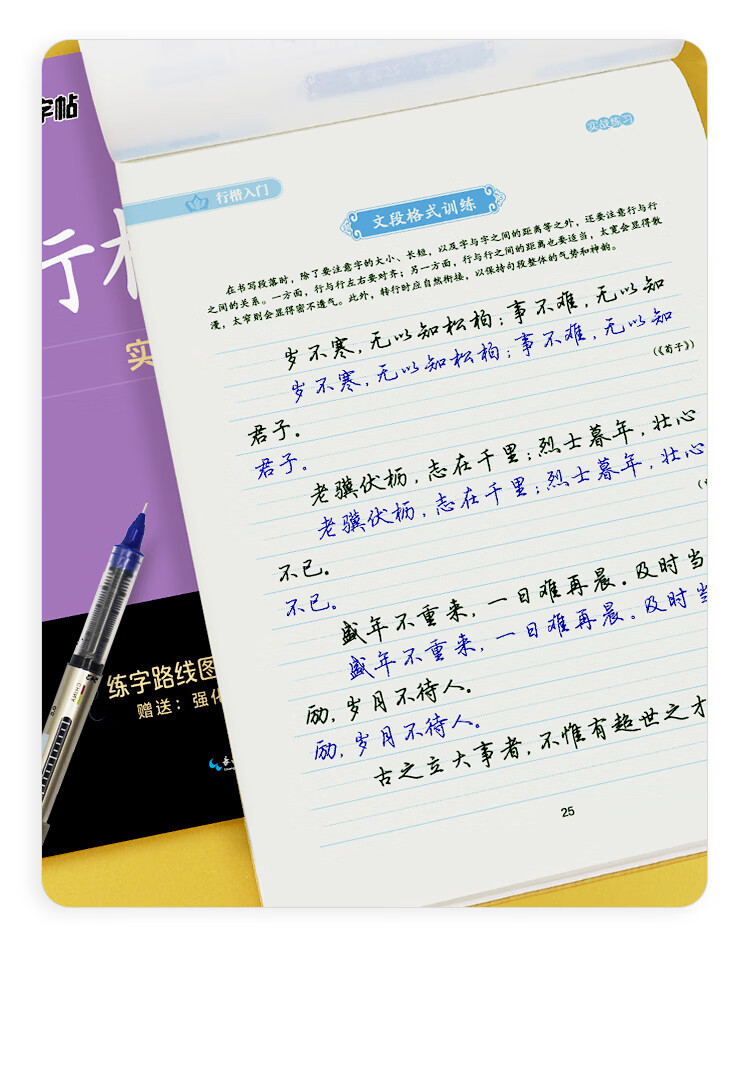 字帖
实战练习
行楷入门
文段格式训练
在书写段落时，除了要注意字的大小、长短，以及字与字之间的距离等之外，还要注意行与行
之间的关系。一方面，行与行左右要对齐；另一方面，行与行之间的距离也要适当，太宽会显得散
漫，太窄则会显得密不透气。此外，转行时应自然衔接，以保持句段整体的气势和神韵。
岁不寒，无以知松柏；事不难，无以知
岁不寒，无以知松柏；事不难，无以知
（《荀子》）
君子。
君子。
老骥伏枥，志在千里；烈士暮年，壮心
老骥伏枥，志在千里；烈士暮年，壮心
不已。
不已。
盛年不重来，一日难再晨。及时当
盛年不重来，一日难再晨。及时当
励，岁月不待人。
励，岁月不待人。
古之立大事者，不惟有超世之才
25
行
实
练字路线图
赠送：强化